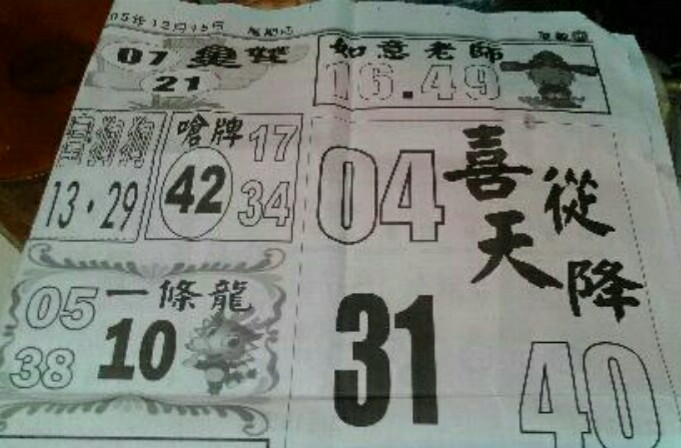 05年12月15日
07
21
如意老師
16.49
狗狗
13.29
嗆牌
17
42
34
喜從
天降
04
31
40
一條龍
05
10
38